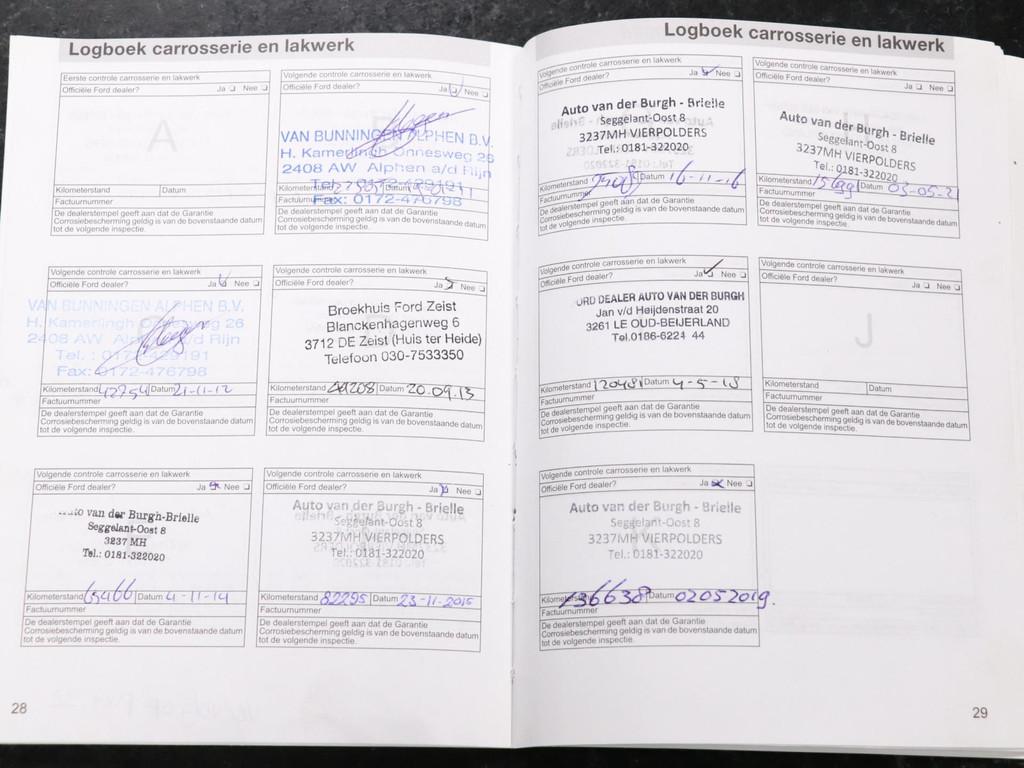 Logboek carrosserie en lakwerk
Eerste controle carrosserie en lakwerk
Officiële Ford dealer? Ja Nee
A
Kilometerstand Datum
Factuurnummer
De dealerstempel geeft aan dat de Garantie
Corrosiebescherming geldig is van de bovenstaande datum
tot de volgende inspectie.
Volgende controle carrosserie en lakwerk
Officiële Ford dealer? Ja Nee
VAN BUNNINGEN ALPHEN B.V.
H. Kamerlingh Onnesweg 26
2408 AW Alphen a/d Rijn
Tel.: 0172-429191
Fax: 0172-476798
Kilometerstand Datum
Factuurnummer
De dealerstempel geeft aan dat de Garantie
Corrosiebescherming geldig is van de bovenstaande datum
tot de volgende inspectie.
Volgende controle carrosserie en lakwerk
Officiële Ford dealer? Ja Nee
VAN BUNNINGEN ALPHEN B.V.
H. Kamerlingh Onnesweg 26
2408 AW Alphen a/d Rijn
Tel.: 0172-429191
Fax: 0172-476798
Kilometerstand 42754 Datum 21-11-12
Factuurnummer
De dealerstempel geeft aan dat de Garantie
Corrosiebescherming geldig is van de bovenstaande datum
tot de volgende inspectie.
Volgende controle carrosserie en lakwerk
Officiële Ford dealer? Ja Nee
Broekhuis Ford Zeist
Blanckenhagenweg 6
3712 DE Zeist (Huis ter Heide)
Telefoon 030-7533350
Kilometerstand Datum 20.09.13
Factuurnummer
De dealerstempel geeft aan dat de Garantie
Corrosiebescherming geldig is van de bovenstaande datum
tot de volgende inspectie.
Volgende controle carrosserie en lakwerk
Officiële Ford dealer? Ja Nee
van der Burgh-Brielle
Seggelant-Oost 8
3237 MH
Tel.: 0181-322020
Kilometerstand 65466 Datum 4-11-14
Factuurnummer
De dealerstempel geeft aan dat de Garantie
Corrosiebescherming geldig is van de bovenstaande datum
tot de volgende inspectie.
Volgende controle carrosserie en lakwerk
Officiële Ford dealer? Ja Nee
Auto van der Burgh - Brielle
Seggelant-Oost 8
3237MH VIERPOLDERS
Tel.: 0181-322020
Kilometerstand 82295 Datum 23-11-2015
Factuurnummer
De dealerstempel geeft aan dat de Garantie
Corrosiebescherming geldig is van de bovenstaande datum
tot de volgende inspectie.
28
Logboek carrosserie en lakwerk
Volgende controle carrosserie en lakwerk
Officiële Ford dealer? Ja Nee
Auto van der Burgh - Brielle
Seggelant-Oost 8
3237MH VIERPOLDERS
Tel.: 0181-322020
Kilometerstand Datum 16-11-16
Factuurnummer
De dealerstempel geeft aan dat de Garantie
Corrosiebescherming geldig is van de bovenstaande datum
tot de volgende inspectie.
Volgende controle carrosserie en lakwerk
Officiële Ford dealer? Ja Nee
Auto van der Burgh - Brielle
Seggelant-Oost 8
3237MH VIERPOLDERS
Tel.: 0181-322020
Kilometerstand Datum 03-05-21
Factuurnummer
De dealerstempel geeft aan dat de Garantie
Corrosiebescherming geldig is van de bovenstaande datum
tot de volgende inspectie.
Volgende controle carrosserie en lakwerk
Officiële Ford dealer? Ja Nee
ORD DEALER AUTO VAN DER BURGH
Jan v/d Heijdenstraat 20
3261 LE OUD-BEIJERLAND
Tel.0186-6224 44
Kilometerstand 120481 Datum 4-5-18
Factuurnummer
De dealerstempel geeft aan dat de Garantie
Corrosiebescherming geldig is van de bovenstaande datum
tot de volgende inspectie.
Volgende controle carrosserie en lakwerk
Officiële Ford dealer? Ja Nee
J
Kilometerstand Datum
Factuurnummer
De dealerstempel geeft aan dat de Garantie
Corrosiebescherming geldig is van de bovenstaande datum
tot de volgende inspectie.
Volgende controle carrosserie en lakwerk
Officiële Ford dealer? Ja Nee
Auto van der Burgh - Brielle
Seggelant-Oost 8
3237MH VIERPOLDERS
Tel.: 0181-322020
Kilometerstand 136638 Datum 02052019.
Factuurnummer
De dealerstempel geeft aan dat de Garantie
Corrosiebescherming geldig is van de bovenstaande datum
tot de volgende inspectie.
29